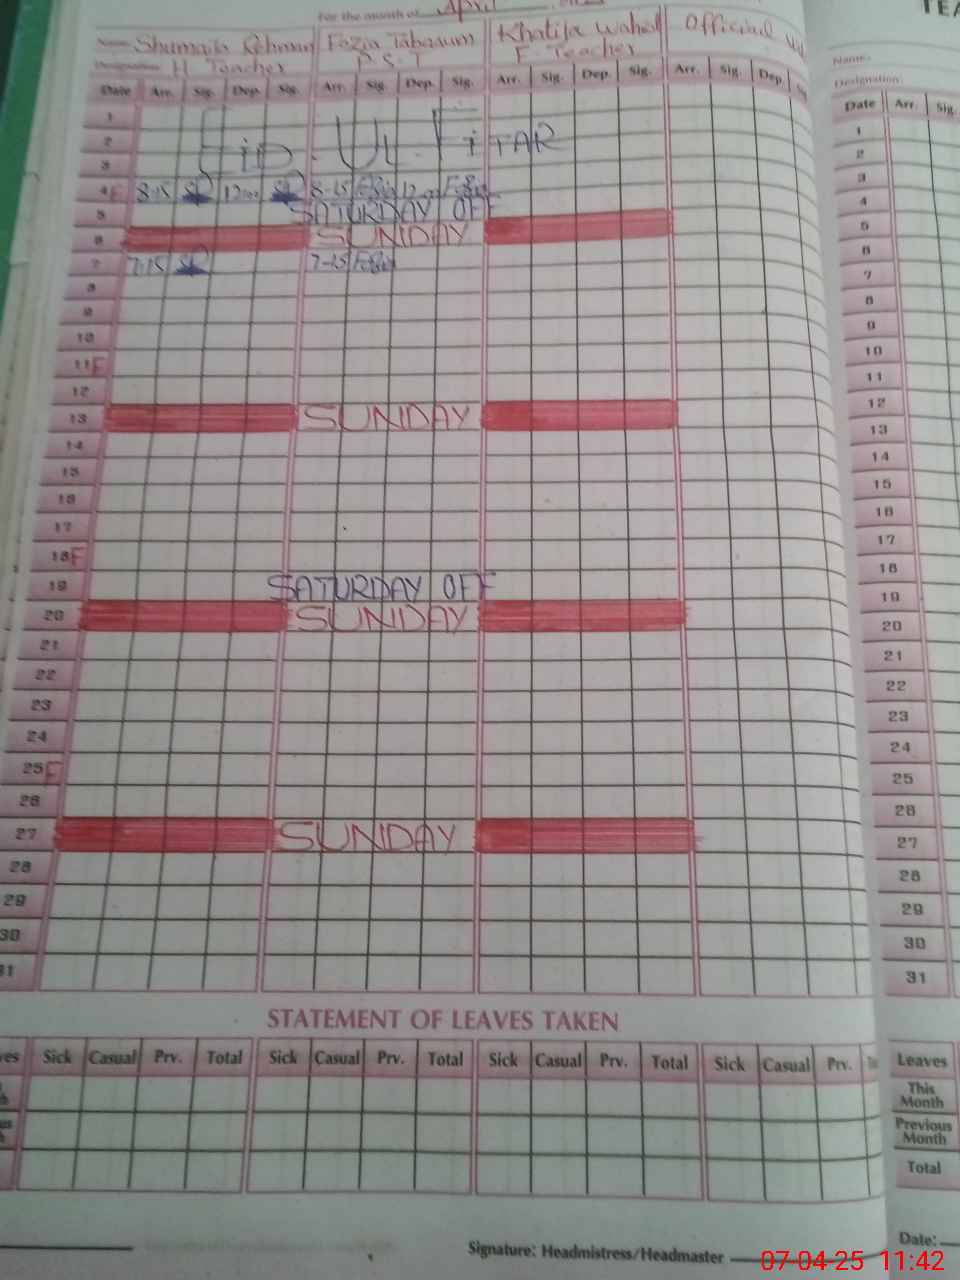 TEA
For the month of April
Name: Shumaila Rehman Fozia Tabassum Khatija Wahed Official
Designation: H Teacher P.S.T F. Teacher
Date Arr. Sig. Dep. Sig. Arr. Sig. Dep. Sig. Arr. Sig. Dep. Sig. Arr. Sig. Dep.
1
2 Eid. Ul. FiTAR
3
4 F 8-15 12:00 8-15 12:00
5 SATURDAY OFF
6 SUNDAY
7 7-15 7-15
8
9
10
11 F
12
13 SUNDAY
14
15
16
17
18 F
19 SATURDAY OFF
20 SUNDAY
21
22
23
24
25 F
26
27 SUNDAY
28
29
30
31
STATEMENT OF LEAVES TAKEN
ves Sick Casual Prv. Total Sick Casual Prv. Total Sick Casual Prv. Total Sick Casual Prv.
Signature: Headmistress/Headmaster
Name:
Designation:
Date Arr. Sig.
1
2
3
4
5
6
7
8
9
10
11
12
13
14
15
16
17
18
19
20
21
22
23
24
25
26
27
28
29
30
31
Leaves
This Month
Previous Month
Total
Date:
07-04-25 11:42